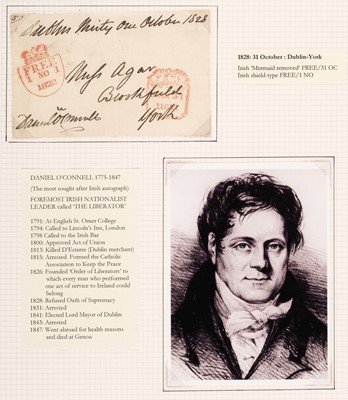 Dublin thirty one October 1828
FREE
1 NO 1
1828
Miss Agar
Brockfield
York
Daniel O'Connell
1828: 31 October : Dublin-York
Irish 'Mermaid removed' FREE/31 OC
Irish shield-type FREE/1 NO
DANIEL O'CONNELL 1775-1847
(The most sought after Irish autograph)
FOREMOST IRISH NATIONALIST
LEADER called 'THE LIBERATOR'
1791: At English St. Omer College
1794: Called to Lincoln's Inn, London
1798 Called to the Irish Bar
1800: Approved Act of Union
1815: Killed D'Esterre (Dublin merchant)
1815: Arrested. Formed the Catholic
Association to Keep the Peace
1826: Founded 'Order of Liberators' to
which every man who performed
one act of service to Ireland could
belong
1828: Refused Oath of Supremacy
1831: Arrested
1841: Elected Lord Mayor of Dublin
1843: Arrested
1847: Went abroad for health reasons
and died at Genoa